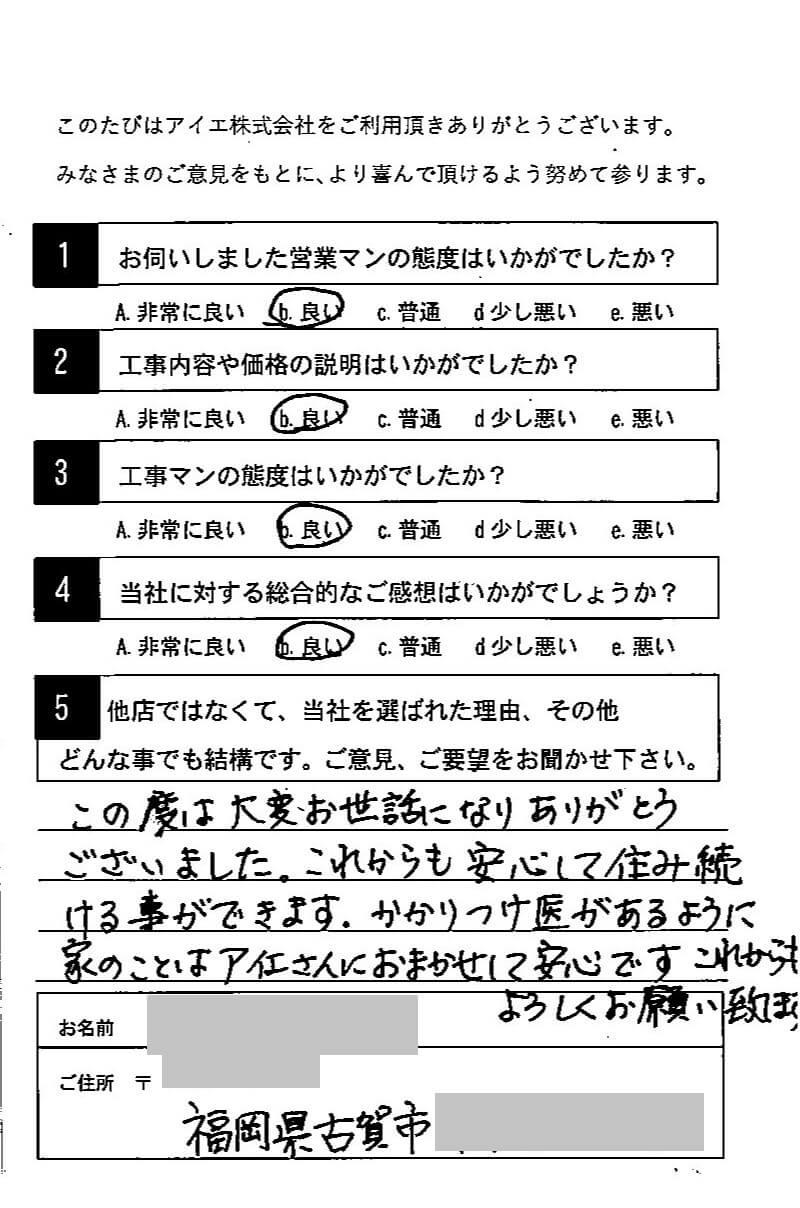 このたびはアイエ株式会社をご利用頂きありがとうございます。
みなさまのご意見をもとに、より喜んで頂けるよう努めて参ります。
1 お伺いしました営業マンの態度はいかがでしたか？
A. 非常に良い b. 良い c. 普通 d 少し悪い e. 悪い
2 工事内容や価格の説明はいかがでしたか？
A. 非常に良い b. 良い c. 普通 d 少し悪い e. 悪い
3 工事マンの態度はいかがでしたか？
A. 非常に良い b. 良い c. 普通 d 少し悪い e. 悪い
4 当社に対する総合的なご感想はいかがでしょうか？
A. 非常に良い b. 良い c. 普通 d 少し悪い e. 悪い
5 他店ではなくて、当社を選ばれた理由、その他
どんな事でも結構です。ご意見、ご要望をお聞かせ下さい。
この度は大変お世話になりありがとう
ございました。これからも安心して住み続
ける事ができます。かかりつけ医があるように
家のことはアイエさんにおまかせして安心です これからも
よろしくお願い致ます
お名前
ご住所 〒
福岡県古賀市